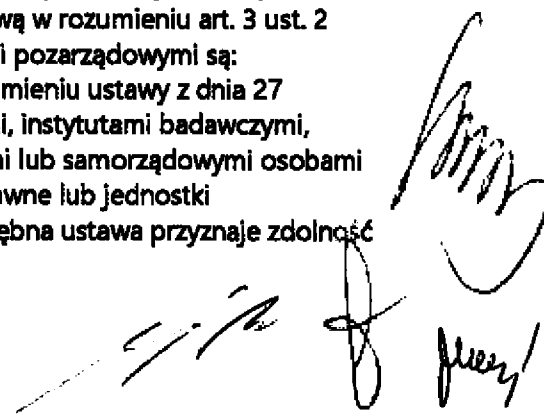 wą w rozumieniu art. 3 ust. 2
i pozarządowymi są:
mieniu ustawy z dnia 27
i, instytutami badawczymi,
ni lub samorządowymi osobami
awne lub jednostki
ębna ustawa przyznaje zdolność